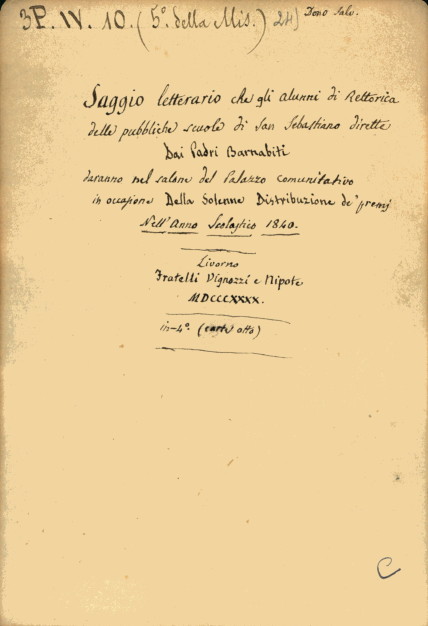 3P. IV. 10. (5º. della Mis.) 24)
Dono Salv.
Saggio letterario che gli alunni di Rettorica
delle pubbliche scuole di San Sebastiano dirette
Dai Padri Barnabiti
daranno nel salone del Palazzo comunitativo
in occasione Della Solenne Distribuzione de' premj
Nell'Anno Scolastico 1840.
Livorno
Fratelli Vignozzi e Nipote
MDCCCXXXX.
in-4º. (carte otto)
C